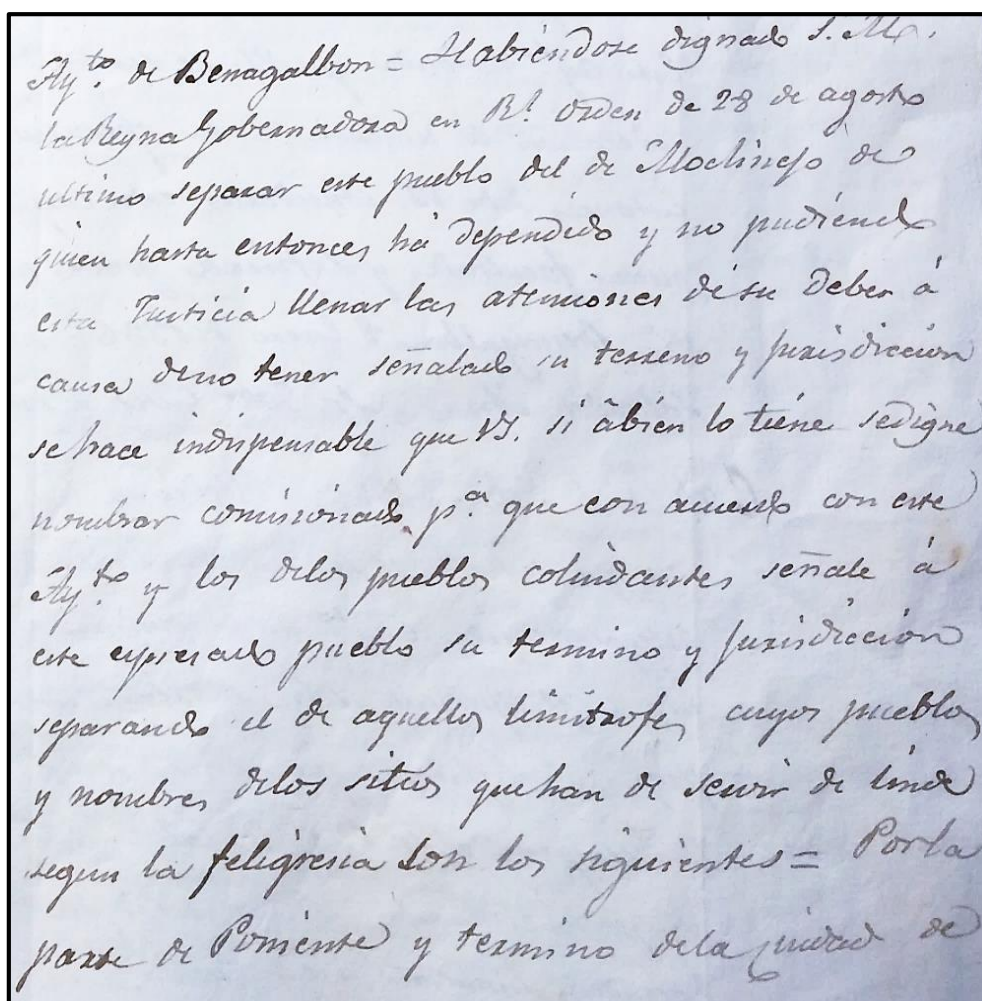 Ay.to de Benagalbon = Habiéndose dignado S. M.
la Reyna Gobernadora en R.l orden de 28 de agosto
ultimo separar este pueblo del de Moclinejo de
quien hasta entonces há dependido y no pudiendo
esta Justicia llenar las atenciones desu deber á
causa deno tener señalado su terreno y jurisdiccion
se hace indispensable que VS. si ábien lo tiene sedigne
nombrar comisionado p.a que con acuerdo con este
Ay.to y los delos pueblos colindantes señale á
este espresado pueblo su termino y jurisdiccion
separando el de aquellos limitrofes cuyos pueblos
y nombres delos sitios quehan de servir de linde
segun la feligresia son los siguientes = Porla
parte de Poniente y termino dela Ciudad de